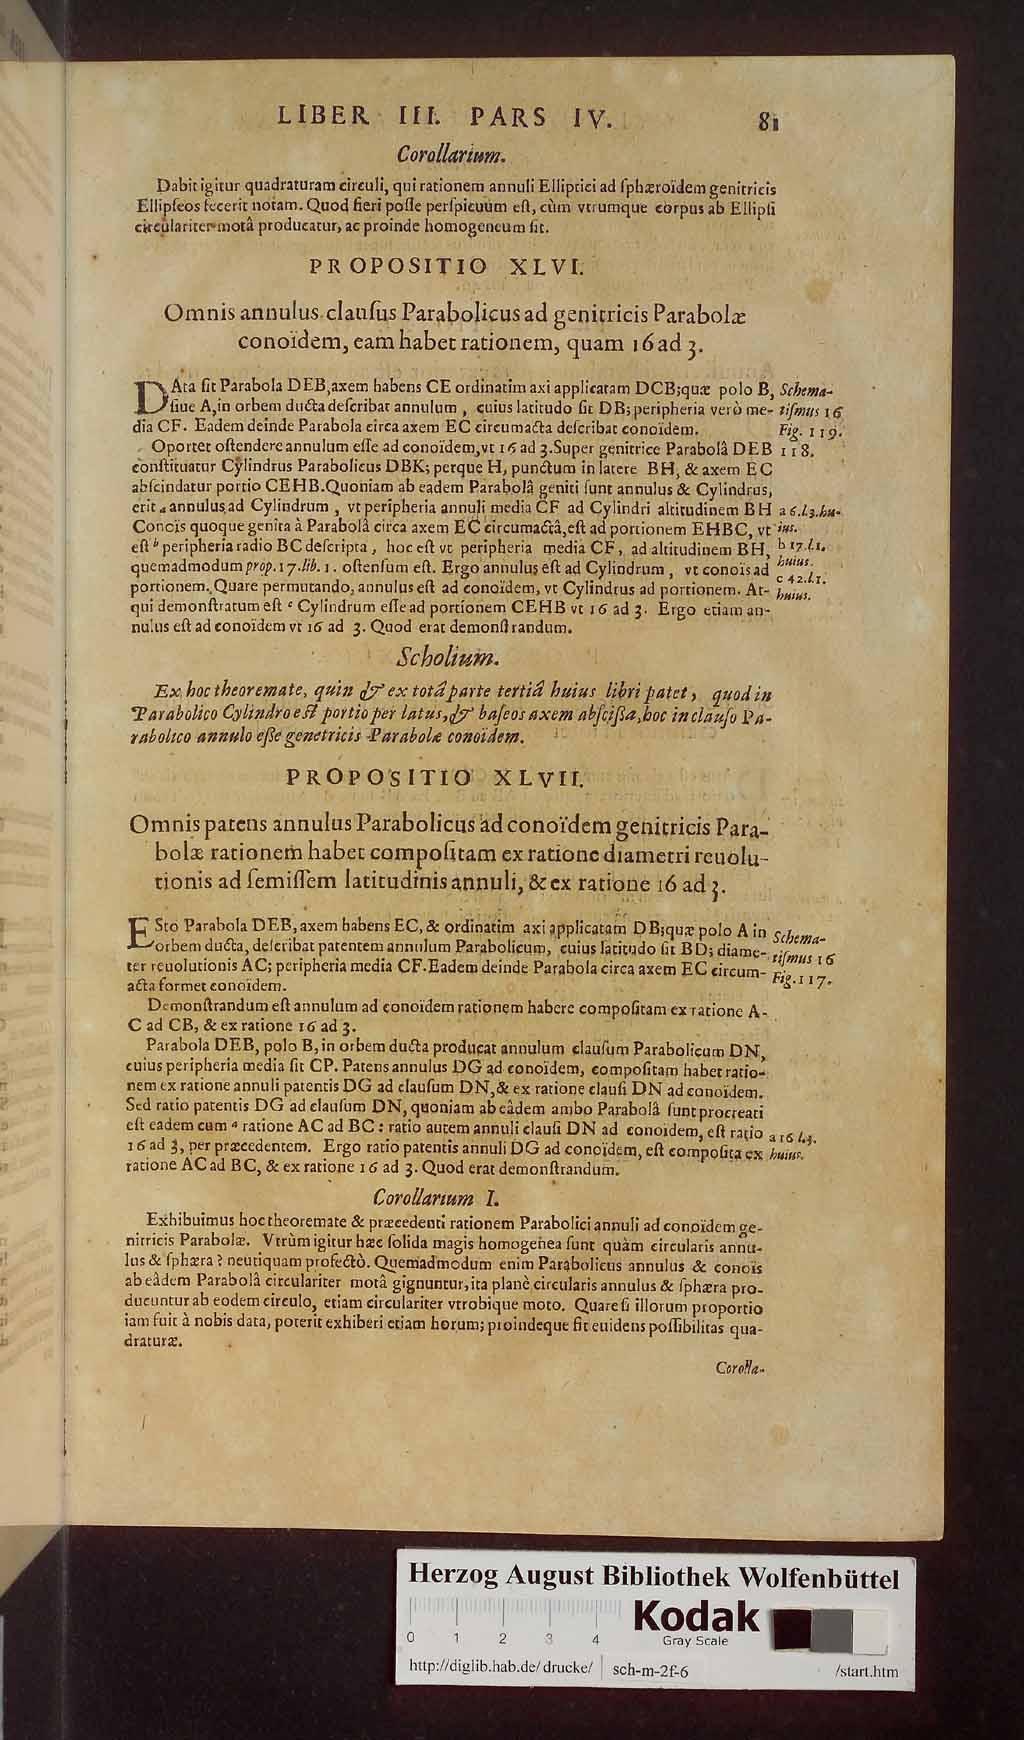 LIBER III. PARS IV. 81
Corollarium.
Dabit igitur quadraturam circuli, qui rationem annuli Elliptici ad ſphæroïdem genitricis
Ellipſeos fecerit notam. Quod fieri poſſe perſpicuum eſt, cùm vtrumque corpus ab Ellipſi
circulariter motâ producatur, ac proinde homogeneum ſit.
PROPOSITIO XLVI.
Omnis annulus clauſus Parabolicus ad genitricis Parabolæ
conoïdem, eam habet rationem, quam 16 ad 3.
DAta ſit Parabola DEB, axem habens CE ordinatim axi applicatam DCB; quæ polo B, Schema-
ſiue A, in orbem ducta deſcribat annulum, cuius latitudo ſit DB; peripheria verò me- tiſmus 16
dia CF. Eadem deinde Parabola circa axem EC circumacta deſcribat conoïdem. Fig. 119.
Oportet oſtendere annulum eſſe ad conoïdem, vt 16 ad 3. Super genitrice Parabolâ DEB 118.
conſtituatur Cylindrus Parabolicus DBK; perque H, punctum in latere BH, & axem EC
abſcindatur portio CEHB. Quoniam ab eadem Parabolâ geniti ſunt annulus & Cylindrus,
erit a annulus ad Cylindrum, vt peripheria annuli media CF ad Cylindri altitudinem BH a 6.l.3.hu-
Conois quoque genita à Parabolâ circa axem EC circumactâ, eſt ad portionem EHBC, vt ius.
eſt b peripheria radio BC deſcripta, hoc eſt vt peripheria media CF, ad altitudinem BH, b 17.l.1.
quemadmodum prop. 17. lib. 1. oſtenſum eſt. Ergo annulus eſt ad Cylindrum, vt conois ad huius.
portionem. Quare permutando, annulus eſt ad conoïdem, vt Cylindrus ad portionem. At- c 42.l.1.
qui demonſtratum eſt c Cylindrum eſſe ad portionem CEHB vt 16 ad 3. Ergo etiam an- huius.
nulus eſt ad conoïdem vt 16 ad 3. Quod erat demonſtrandum.
Scholium.
Ex hoc theoremate, quin & ex totâ parte tertiâ huius libri patet, quod in
Parabolico Cylindro eſt portio per latus, & baſeos axem abſciſſa, hoc in clauſo Pa-
rabolico annulo eſſe genetricis Parabolæ conoïdem.
PROPOSITIO XLVII.
Omnis patens annulus Parabolicus ad conoïdem genitricis Para-
bolæ rationem habet compoſitam ex ratione diametri reuolu-
tionis ad ſemiſſem latitudinis annuli, & ex ratione 16 ad 3.
ESto Parabola DEB, axem habens EC, & ordinatim axi applicatam DB; quæ polo A in Schema-
orbem ducta, deſcribat patentem annulum Parabolicum, cuius latitudo ſit BD; diame- tiſmus 16
ter reuolutionis AC; peripheria media CF. Eadem deinde Parabola circa axem EC circum- Fig. 117.
acta formet conoïdem.
Demonſtrandum eſt annulum ad conoïdem rationem habere compoſitam ex ratione A-
C ad CB, & ex ratione 16 ad 3.
Parabola DEB, polo B, in orbem ducta producat annulum clauſum Parabolicum DN,
cuius peripheria media ſit CP. Patens annulus DG ad conoïdem, compoſitam habet ratio-
nem ex ratione annuli patentis DG ad clauſum DN, & ex ratione clauſi DN ad conoïdem.
Sed ratio patentis DG ad clauſum DN, quoniam ab eâdem ambo Parabolâ ſunt procreati
eſt eadem cum a ratione AC ad BC: ratio autem annuli clauſi DN ad conoïdem, eſt ratio a 16 l.3.
16 ad 3, per præcedentem. Ergo ratio patentis annuli DG ad conoïdem, eſt compoſita ex huius.
ratione AC ad BC, & ex ratione 16 ad 3. Quod erat demonſtrandum.
Corollarium I.
Exhibuimus hoc theoremate & præcedenti rationem Parabolici annuli ad conoïdem ge-
nitricis Parabolæ. Vtrùm igitur hæc ſolida magis homogenea ſunt quàm circularis annu-
lus & ſphæra? neutiquam profectò. Quemadmodum enim Parabolicus annulus & conois
ab eâdem Parabolâ circulariter motâ gignuntur, ita planè circularis annulus & ſphæra pro-
ducuntur ab eodem circulo, etiam circulariter vtrobique moto. Quare ſi illorum proportio
iam fuit à nobis data, poterit exhiberi etiam horum; proindeque ſit euidens poſſibilitas qua-
draturæ.
Corolla-
Herzog August Bibliothek Wolfenbüttel
Kodak
Gray Scale
0 1 2 3 4
http://diglib.hab.de/drucke/ sch-m-2f-6 /start.htm